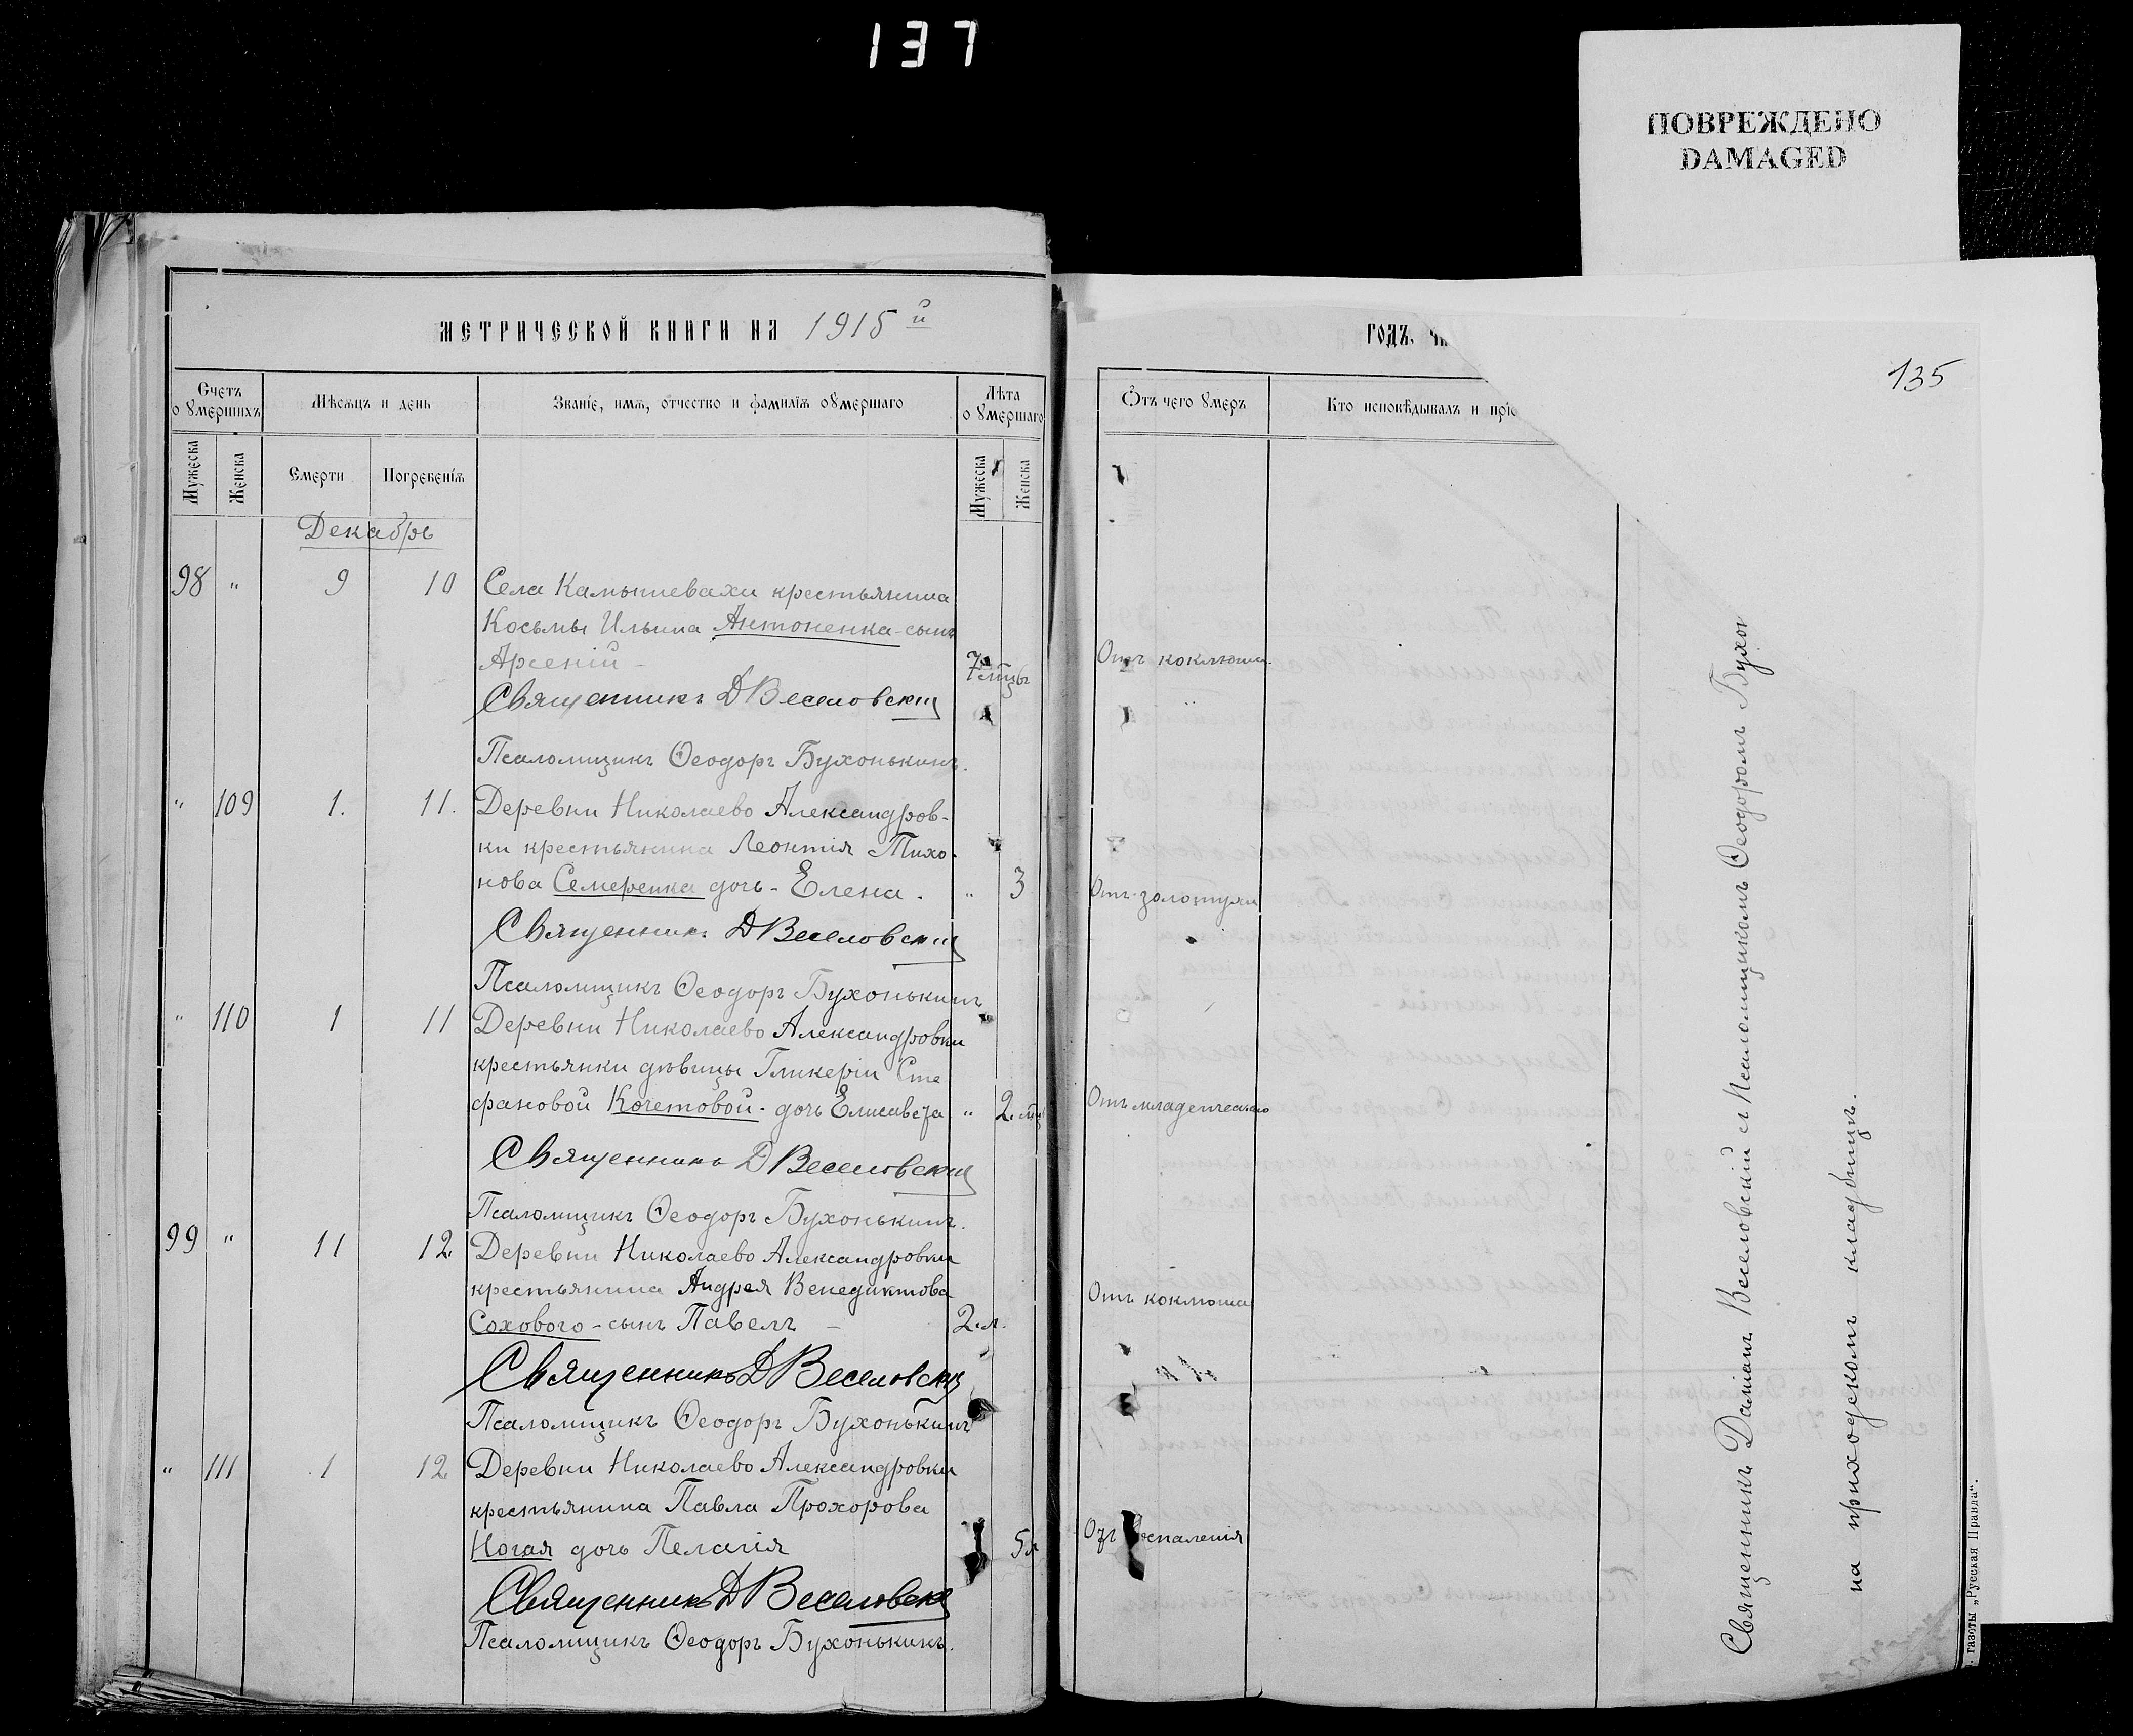 137
ПОВРЕЖДЕНО
DAMAGED
МЕТРИЧЕСКОЙ КНИГИ НА 1915й
Счетъ
оумершихъ
Мѣсяцъ и день
Званіе, имя, отчество и фамилія оумершаго
Лѣта
оумершаго
Мужеска
Женска
Смерти
Погребенія
Мужеска
Женска
Декабрь
98 " 9 10 Села Камышевахи крестьянина
Косьмы Ильина Антоненка-сынъ
Арсеній - 7 мцы
Священникъ Д Веселовскій
Псаломщикъ Ѳеодоръ Бухонькинъ.
" 109 1. 11. Деревни Николаево Александров-
ки крестьянина Леонтія Тихо-
нова Семеренка дочь - Елена. " 3
Священникъ Д Веселовскій
Псаломщикъ Ѳеодоръ Бухонькинъ
" 110 1 11 Деревни Николаево Александровки
крестьянки дѣвицы Гликеріи Сте
фановой Кочетовой - дочь Елисавета " 2. мц
Священникъ Д Веселовскій
Псаломщикъ Ѳеодоръ Бухонькинъ.
99 " 11 12. Деревни Николаево Александровки
крестьянина Андрея Венедиктова
Сохового - сынъ Павелъ - 2. л.
Священникъ Д Веселовскій
Псаломщикъ Ѳеодоръ Бухонькинъ
" 111 1 12 Деревни Николаево Александровки
крестьянина Павла Прохорова
Ногая дочь Пелагія 5 л
Священникъ Д Веселовскій
Псаломщикъ Ѳеодоръ Бухонькинъ.
ГОДЪ,
135
Отъ чего умеръ
Кто исповѣдывалъ и прїо
Отъ коклюша.
Отъ золотухи
Отъ младенческаго
Отъ коклюша
Отъ воспаленія
Священникъ Даміанъ Веселовскій съ Псаломщикомъ Ѳеодоромъ Бухон
на приходскомъ кладбищѣ.
. газеты „Русская Правда".